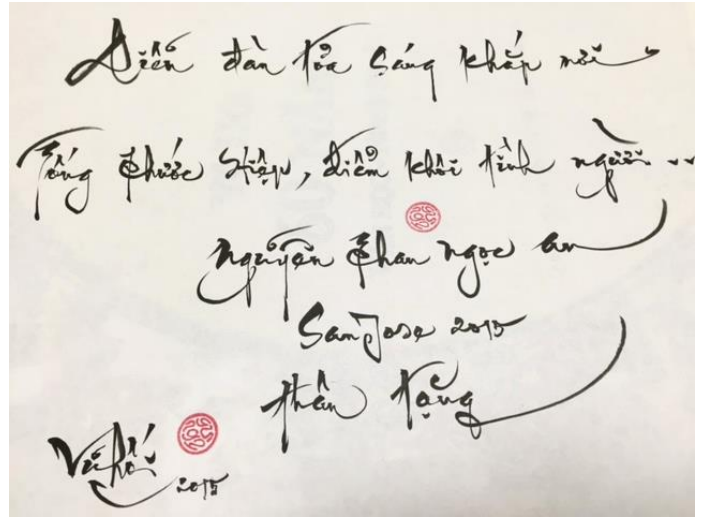 Diễn đàn tỏa sáng khắp nơi
Tống Phước Hiệp, điểm khôi tình người ..
Nguyễn Phan Ngọc An
San Jose 2015
thân tặng
Vũ Hối
2015